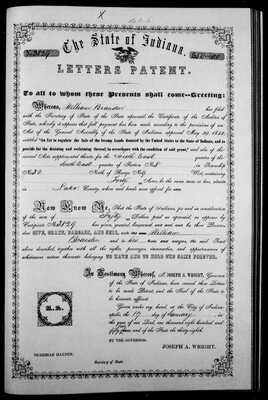 The State of Indiana,
LETTERS PATENT.
To all to whom these Presents shall come—Greeting:
Whereas, William Brander has filed
with the Secretary of State of the State aforesaid the Certificate of the Auditor of
State, whereby it appears that full payment has been made according to the provisions of an
Act of the General Assembly of the State of Indiana, approved May 29, 1852,
entitled "An Act to regulate the Sale of the Swamp Lands donated by the United States to the State of Indiana, and to
provide for the draining and reclaiming thereof in accordance with the condition of said grant," and also of the
several Acts supplemental thereto, for the North East quarter of the
South East quarter of Section No.
in Township
North of Range No. West, containing
Forty Acres, be the same more or less, situate in
County, where said lands were offered for sale.
Now Know Ye, That the State of Indiana, for and in consideration
of the sum of Fifty Dollars paid as aforesaid, as appears by
Certificate No. 3129
GIVE, GRANT, BARGAIN, AND SELL, unto the said William
Brander and to his heirs and assigns, the said Tract
above described, together with all the rights, privileges, immunities, and appurtenances of
whatsoever nature thereunto belonging, TO HAVE AND TO HOLD THE SAME FOREVER.
In Testimony Whereof, I, JOSEPH A. WRIGHT, Governor
of the State of Indiana, have caused these Letters
to be made Patent, and the Seal of the State to
be hereunto affixed.
Given under my hand, at the City of Indianapolis,
the 19 day of January, in
the year of our Lord, one thousand eight hundred and
fifty and of the State the thirty-eighth.
BY THE GOVERNOR.
JOSEPH A. WRIGHT.
NEHEMIAH HAYDEN,
Secretary of State.